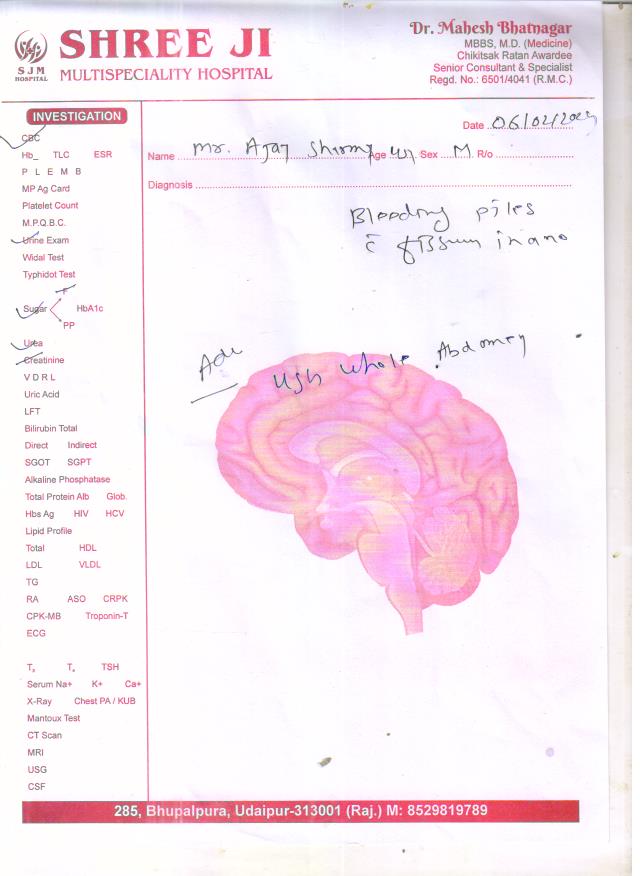 SHREE JI
MULTISPECIALITY HOSPITAL
SJM
HOSPITAL
Dr. Mahesh Bhatnagar
MBBS, M.D. (Medicine)
Chikitsak Ratan Awardee
Senior Consultant & Specialist
Regd. No.: 6501/4041 (R.M.C.)
Date 06/02/
Name Mr. Ajay Sharma Age Sex M R/o
Diagnosis
Bleeding piles
c fissure in ano
Adv
USG whole Abdomen
INVESTIGATION
CBC
Hb_ TLC ESR
P L E M B
MP Ag Card
Platelet Count
M.P.Q.B.C.
Urine Exam
Widal Test
Typhidot Test
F
Sugar HbA1c
PP
Urea
Creatinine
V D R L
Uric Acid
LFT
Bilirubin Total
Direct Indirect
SGOT SGPT
Alkaline Phosphatase
Total Protein Alb Glob.
Hbs Ag HIV HCV
Lipid Profile
Total HDL
LDL VLDL
TG
RA ASO CRPK
CPK-MB Troponin-T
ECG
T₃ T₄ TSH
Serum Na+ K+ Ca+
X-Ray Chest PA / KUB
Mantoux Test
CT Scan
MRI
USG
CSF
285, Bhupalpura, Udaipur-313001 (Raj.) M: 8529819789